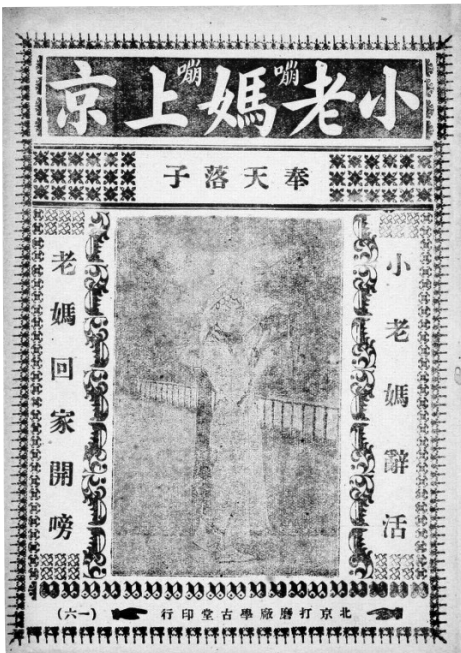 小老媽上京
嘣嘣
奉天落子
小老媽辭活
老媽回家開嗙
北京打磨廠學古堂印行
(一六)